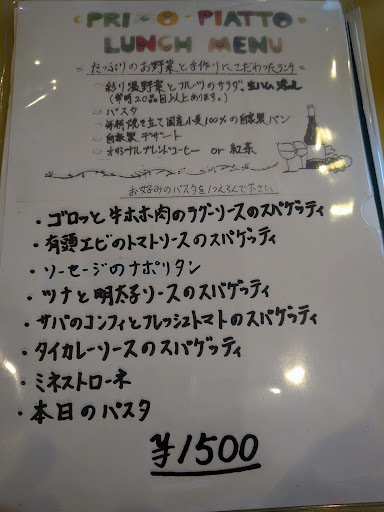 PRIMO-PIATTO
LUNCH MENU
= たっぷりのお野菜と手作りにこだわったランチ =
彩り温野菜とフルーツのサラダ、生ハム添え
(常時20品目以上あります。)
パスタ
毎朝焼き立て国産小麦100%の自家製パン
自家製デザート
オリジナルブレンドコーヒー or 紅茶
お好みのパスタを1つえらんで下さい
・ゴロッと牛ホホ肉のラグーソースのスパゲッティ
・有頭エビのトマトソースのスパゲッティ
・ソーセージのナポリタン
・ツナと明太子ソースのスパゲッティ
・サバのコンフィとフレッシュトマトのスパゲッティ
・タイカレーソースのスパゲッティ
・ミネストローネ
・本日のパスタ
¥1500